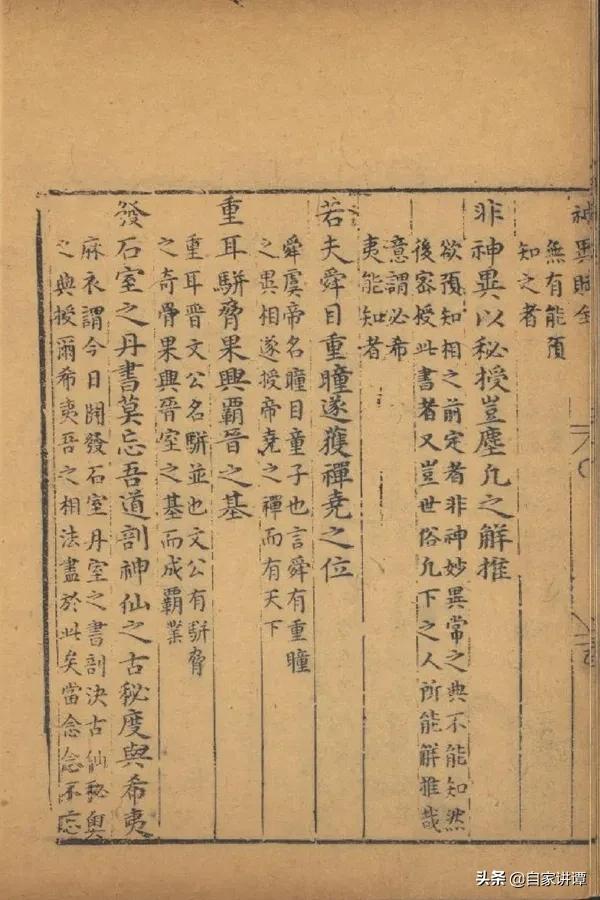 神異賦全
無有能預
知之者
非神異以秘授豈塵凢之解推
欲預知相之前定者非神妙異常之典不能知然
後密授此書者又豈世俗凢下之人所能解推哉
意謂必希
夷能知者
若夫舜目重瞳遂獲禪堯之位
舜虞帝名瞳目童子也言舜有重瞳
之異相遂授帝堯之禪而有天下
重耳駢脅果興霸晉之基
重耳晋文公名駢並也文公有駢脅
之奇骨果興晉室之基而成霸業
發石室之丹書莫忘吾道剖神仙之古秘度與希夷
麻衣謂今日開發石室丹室之書剖決古仙秘奥
之典授爾希夷吾之相法盡於此矣當念念不忘
头条 @自家讲谭